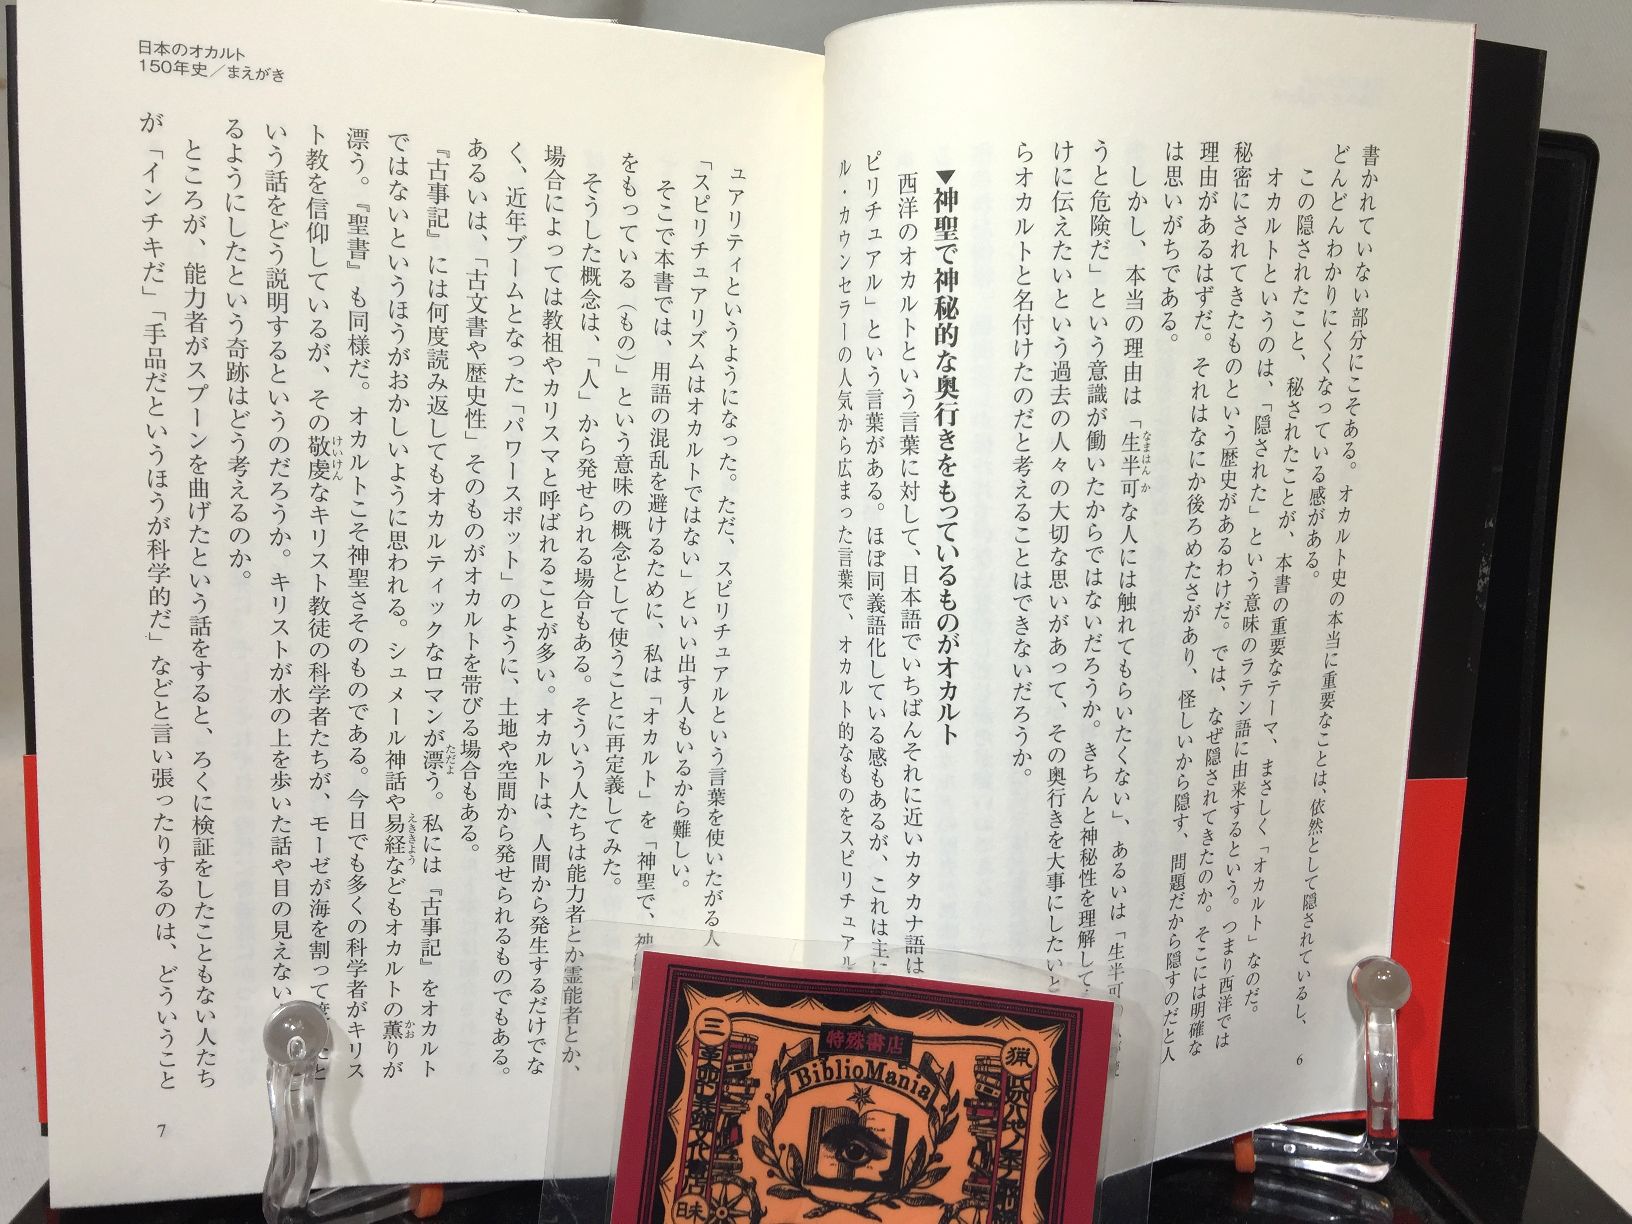 書かれていない部分にこそある。オカルト史の本当に重要なことは、依然として隠されているし、
どんどんわかりにくくなっている感がある。
この隠されたこと、秘されたことが、本書の重要なテーマ、まさしく「オカルト」なのだ。
オカルトというのは、「隠された」という意味のラテン語に由来するという。つまり西洋では
秘密にされてきたものという歴史があるわけだ。では、なぜ隠されてきたのか。そこには明確な
理由があるはずだ。それはなにか後ろめたさがあり、怪しいから隠す、問題だから隠すのだと人
は思いがちである。
しかし、本当の理由は「生半可な人には触れてもらいたくない」、あるいは「生半可
なまはんか
うと危険だ」という意識が働いたからではないだろうか。きちんと神秘性を理解して
けに伝えたいという過去の人々の大切な思いがあって、その奥行きを大事にしたいと
らオカルトと名付けたのだと考えることはできないだろうか。
▼神聖で神秘的な奥行きをもっているものがオカルト
西洋のオカルトという言葉に対して、日本語でいちばんそれに近いカタカナ語は
ピリチュアル」という言葉がある。ほぼ同義語化している感もあるが、これは主に
ル・カウンセラーの人気から広まった言葉で、オカルト的なものをスピリチュアル
6
日本のオカルト
150年史／まえがき
ュアリティというようになった。ただ、スピリチュアルという言葉を使いたがる人
「スピリチュアリズムはオカルトではない」といい出す人もいるから難しい。
そこで本書では、用語の混乱を避けるために、私は「オカルト」を「神聖で、神
をもっている（もの）」という意味の概念として使うことに再定義してみた。
そうした概念は、「人」から発せられる場合もある。そういう人たちは能力者とか霊能者とか、
場合によっては教祖やカリスマと呼ばれることが多い。オカルトは、人間から発生するだけでな
く、近年ブームとなった「パワースポット」のように、土地や空間から発せられるものでもある。
あるいは、「古文書や歴史性」そのものがオカルトを帯びる場合もある。
『古事記』には何度読み返してもオカルティックなロマンが漂う。私には『古事記』をオカルト
ただよ
ではないというほうがおかしいように思われる。シュメール神話や易経などもオカルトの薫りが
えききょう
かお
漂う。『聖書』も同様だ。オカルトこそ神聖さそのものである。今日でも多くの科学者がキリス
ト教を信仰しているが、その敬虔なキリスト教徒の科学者たちが、モーゼが海を割って
けいけん
いう話をどう説明するというのだろうか。キリストが水の上を歩いた話や目の見えない
るようにしたという奇跡はどう考えるのか。
ところが、能力者がスプーンを曲げたという話をすると、ろくに検証をしたこともない人たち
が「インチキだ」「手品だというほうが科学的だ」などと言い張ったりするのは、どういうこと
7
特殊書店
BiblioMania
三
猟
昧